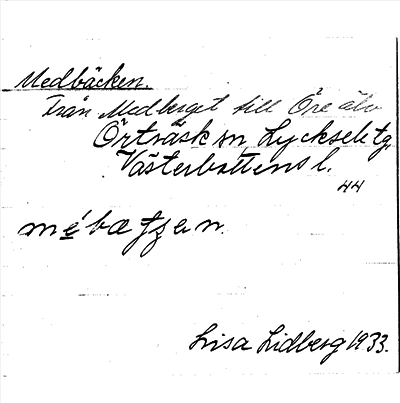 Medbäcken.
Från Medberget till Öre älv
Örträsk sn, Lycksele tg
Västerbottens l.
44
mébætʃen.
Lisa Lidberg 1933.